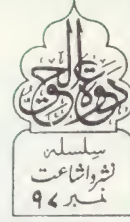 دعوة الحق
سلسلہ
نشر و اشاعت
نمبر ۹۷